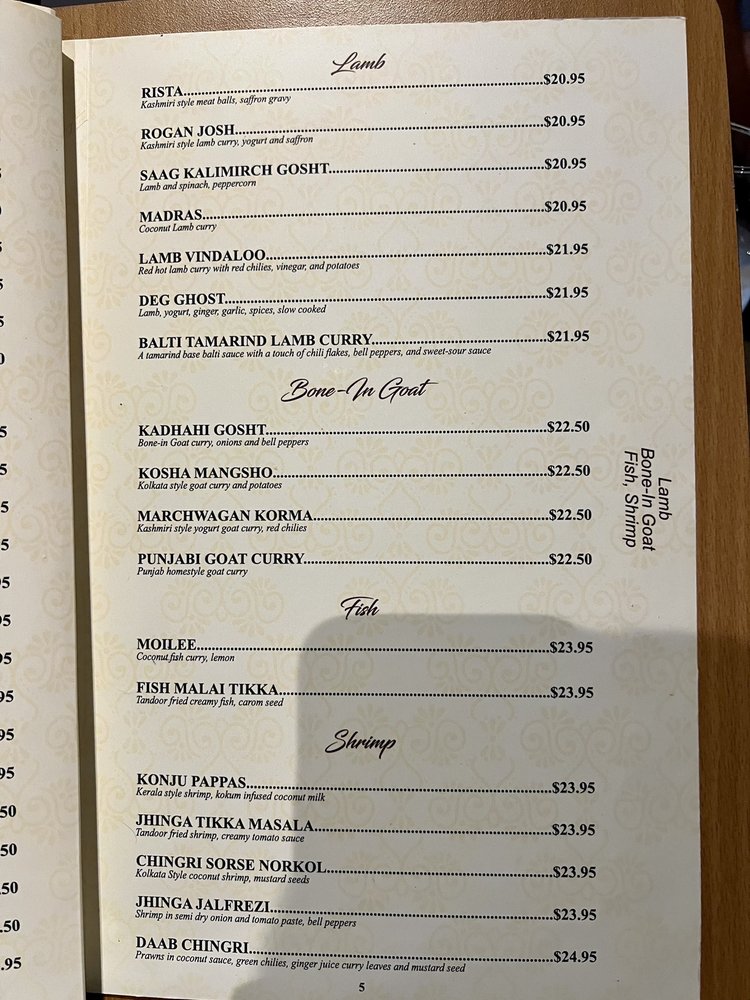 Lamb
RISTA........................$20.95
Kashmiri style meat balls, saffron gravy
ROGAN JOSH........................$20.95
Kashmiri style lamb curry, yogurt and saffron
SAAG KALIMIRCH GOSHT........................$20.95
Lamb and spinach, peppercorn
MADRAS........................$20.95
Coconut Lamb curry
LAMB VINDALOO........................$21.95
Red hot lamb curry with red chilies, vinegar, and potatoes
DEG GHOST........................$21.95
Lamb, yogurt, ginger, garlic, spices, slow cooked
BALTI TAMARIND LAMB CURRY........................$21.95
A tamarind base balti sauce with a touch of chili flakes, bell peppers, and sweet-sour sauce
Bone-In Goat
KADHAHI GOSHT........................$22.50
Bone-in Goat curry, onions and bell peppers
KOSHA MANGSHO........................$22.50
Kolkata style goat curry and potatoes
MARCHWAGAN KORMA........................$22.50
Kashmiri style yogurt goat curry, red chilies
PUNJABI GOAT CURRY........................$22.50
Punjab homestyle goat curry
Fish
MOILEE........................$23.95
Coconut fish curry, lemon
FISH MALAI TIKKA........................$23.95
Tandoor fried creamy fish, carom seed
Shrimp
KONJU PAPPAS........................$23.95
Kerala style shrimp, kokum infused coconut milk
JHINGA TIKKA MASALA........................$23.95
Tandoor fried shrimp, creamy tomato sauce
CHINGRI SORSE NORKOL........................$23.95
Kolkata Style coconut shrimp, mustard seeds
JHINGA JALFREZI........................$23.95
Shrimp in semi dry onion and tomato paste, bell peppers
DAAB CHINGRI........................$24.95
Prawns in coconut sauce, green chilies, ginger juice curry leaves and mustard seed
5
Lamb
Bone-In Goat
Fish, Shrimp